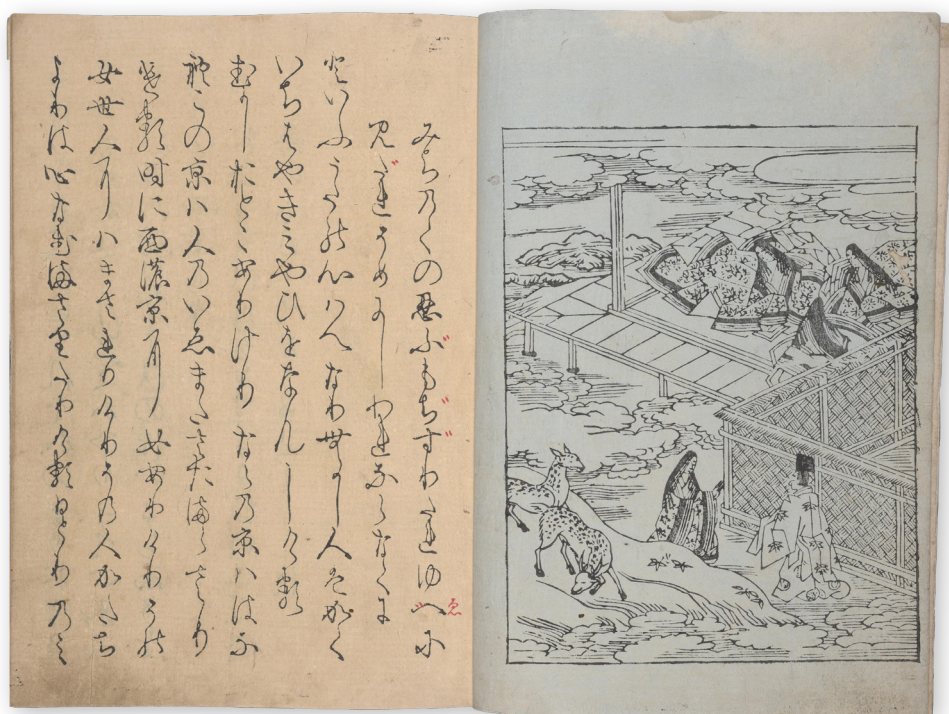 みちのくの忍ぶもぢずりたれゆへに
ゑ
みだれそめにしわれならなくに
といふうたの心はへなりむかし人はかく
いちはやきみやひをなんしける
むかしおとこありけりならの京ははな
れこの京は人のいゑまたさたまらさり
ける時に西の京に女ありけりその
女世人にはまされりけりその人かたち
よりは心なむまさりたりけるひとりのみ